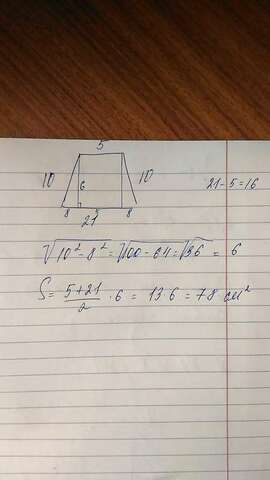 5
10 6 10
21-5=16
8 5 8
21
√10²-8² = √100-64 = √36 = 6
S = 5+21/2 · 6 = 13 6 = 78 см²